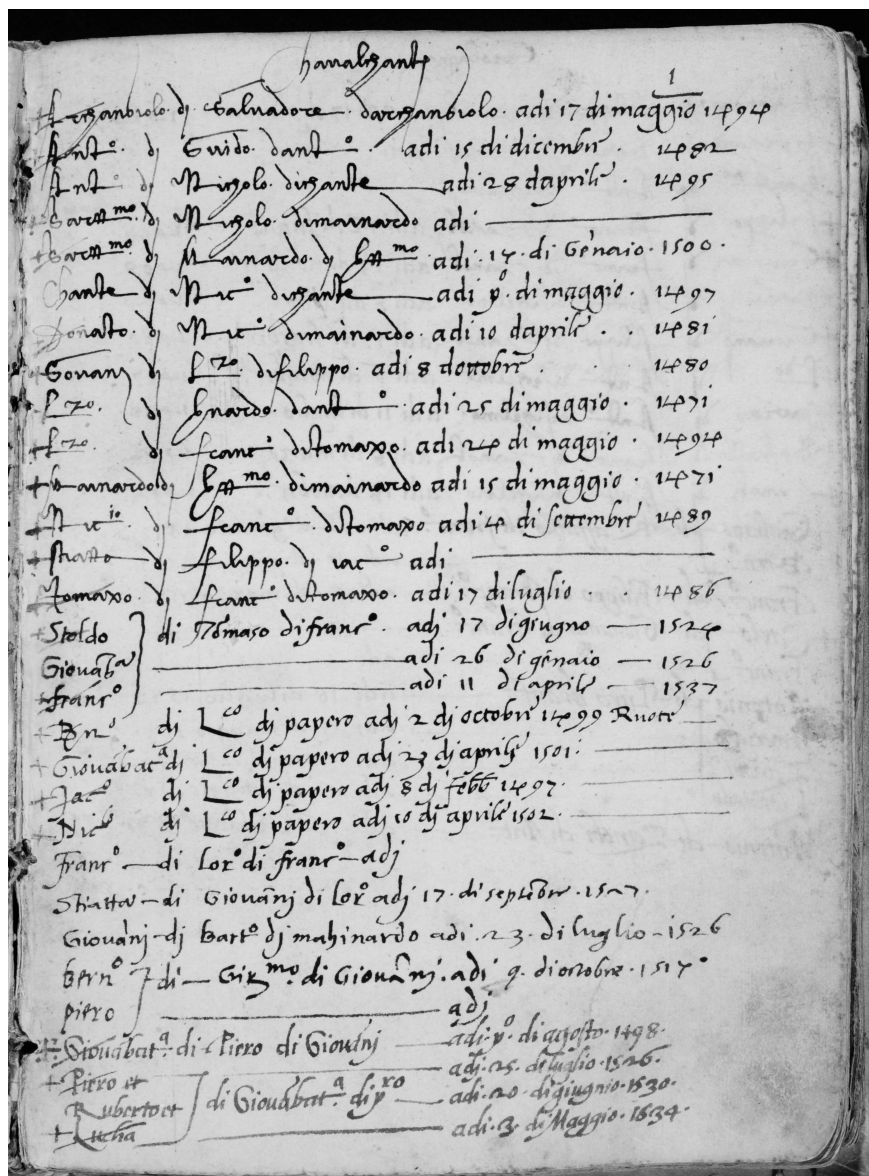 Chavalchanti
1
+ Archanbiolo di Salvadore darchanbiolo adi 17 di maggio 1494
Anto. di Guido danto. adi 15 di dicembre 1482
Anto di Nicholo dichante adi 28 daprile 1495
+ Bartmo. di Nicholo dimainardo adi
+ Bartmo. di Mainardo di bartmo adi 14 di Gennaio 1500
Chante di Nico dichante adi po. di maggio 1497
Donato di Nico dimainardo adi 10 daprile 1481
+ Govani di Lzo. difilippo adi 8 dottobre 1480
+ Lzo. di bnardo danto adi 25 di maggio 1471
+ Lzo. di franco ditomaxo adi 24 di maggio 1494
+ Mainardo di bartmo. dimainardo adi 15 di maggio 1471
+ Nicio. di franco. ditomaxo adi 4 di settembre 1489
+ Stiatto di filippo di iaco adi
Tomaxo di franco ditomaxo adi 17 di luglio 1486
+ Stoldo di Tomaso di franco. adj 17 di giugno — 1524
Giovabta adi 26 di genaio — 1526
+ franco adi 11 di aprile — 1537
+ Bno di Lco dj papero adj 2 dj octobre 1499 Ruote
+ Giovabata di Lco dj papero adj 23 dj aprile 1501
+ Jaco di Lco dj papero adj 8 dj febb 1497
+ Nico di Lco dj papero adj 10 dj aprile 1502
Franco — di Loro di franco — adj
Stiatta — di Giovanj di Loro adj 17 di septebre 1527
Giovanj — dj barto dj mahinardo adi 23 di luglio — 1526
berno di — Girmo. di Giovanj. adi 9. di octobre 1517
piero adj
+ Giovabata. di Piero di Giovanj adi. po. di agosto. 1498.
+ Piero et adj. 25. di luglio. 1526.
Ruberto et di Giovabata. di pro adi. 20. di giugnio. 1530.
+ Lucha adi. 3. di Maggio. 1534.